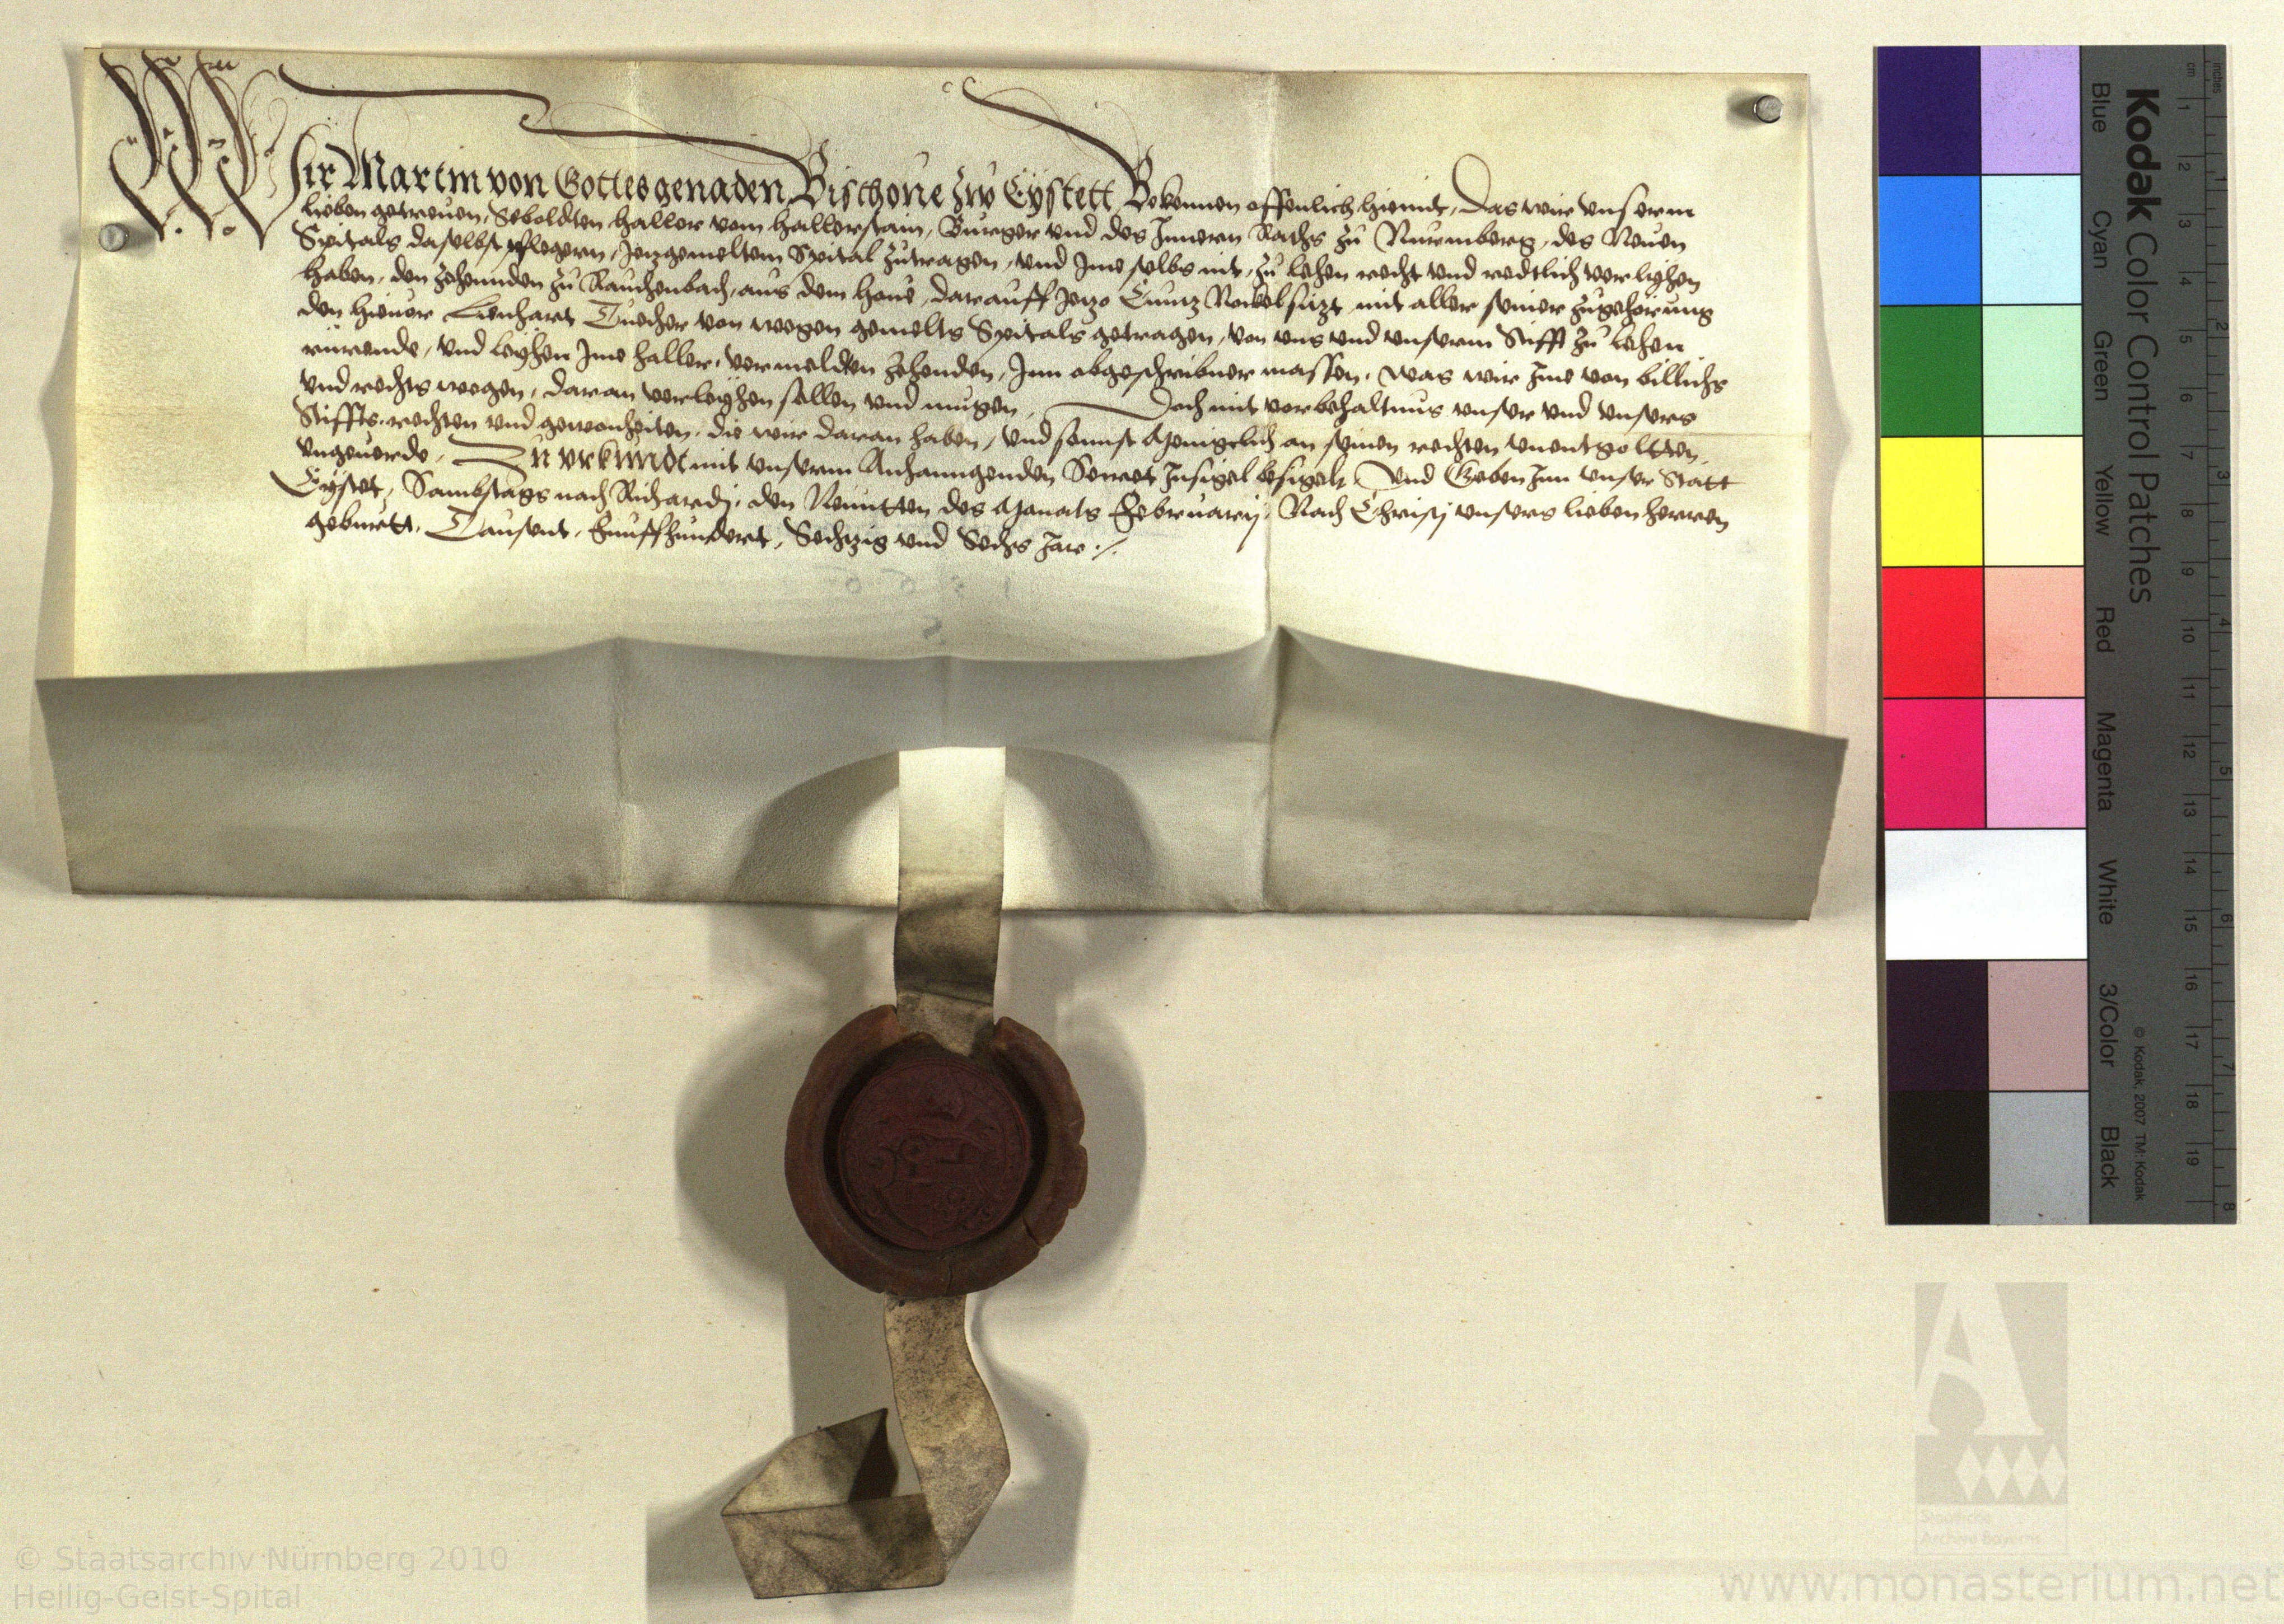 Wir Martin von Gottes genaden Bischoue zw Eystett Bekennen offenlich hiemit, Das wir vnserm
lieben getreuen, Seboldten Haller vom Hallerstain, Burger vnd des Innern Raths zu Nuremberg, des Neuen
Spitals daselbst pflegern, Jezgemeltem Spital zutragen, vnd Jme selbs nit, zu lehen recht vnd redtlich verlyhen
haben, den zehennden zu Rauchenbach, aus dem Haus, darauff Jezo Cuntz Neckel sitzt mit aller seiner zugehörung
den hieuor Lienhart Tucher von wegen gemelts Spitals getragen, von vns vnd vnserm Stifft zu lehen
rürende, vnd leyhen Jme Haller, vermeldten zehenden, Jnn obgeschribner massen, was wir Jme von billichs
vnd rechts wegen, daran verleyhen sollen vnd mugen, Doch mit vorbehaltnus vnser vnd vnsers
Stiffts, rechten vnd gewonheiten, die wir daran haben, vnd sonnst Menigelich an seinen rechten vnentgoltten,
vngeuerde, Zu vrkundt mit vnserm Anhanngenden Secret Jnsigel besigelt, Vnd Geben Jnn vnser Statt
Eystet, Sambstags nach Richardj, den Neuntten des Monats Februarij, Nach Christj vnsers lieben herren
geburtt, Tausent, Funffhundert, Sechzig vnd Sechs Jare ./.
1 5 6 6
Kodak Color Control Patches
Blue Cyan Green Yellow Red Magenta White 3/Color Black
© Kodak, 2007 TM: Kodak
cm 1 2 3 4 5 6 7 8 9 10 11 12 13 14 15 16 17 18 19
inches 1 2 3 4 5 6 7 8
Staatliche
Archive Bayerns
© Staatsarchiv Nürnberg 2010
Heilig-Geist-Spital
www.monasterium.net